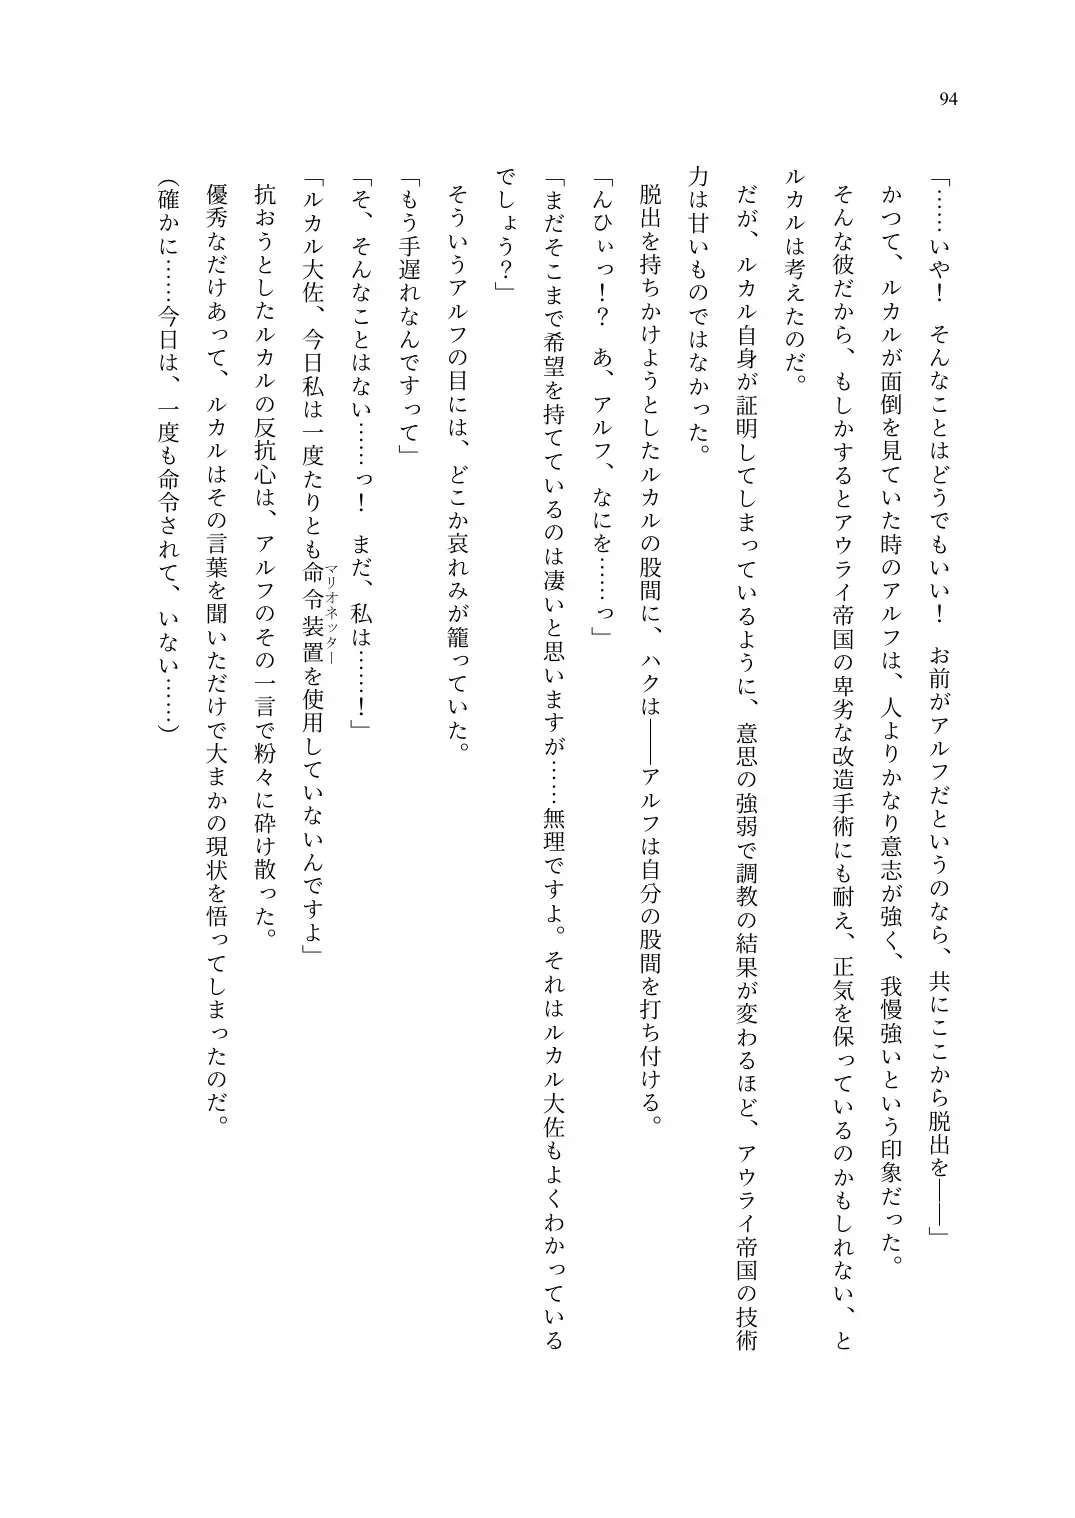 94
「……いや！　そんなことはどうでもいい！　お前がアルフだというのなら、共にここから脱出を――」
　かつて、ルカルが面倒を見ていた時のアルフは、人よりかなり意志が強く、我慢強いという印象だった。
　そんな彼だから、もしかするとアウライ帝国の卑劣な改造手術にも耐え、正気を保っているのかもしれない、と
ルカルは考えたのだ。
　だが、ルカル自身が証明してしまっているように、意思の強弱で調教の結果が変わるほど、アウライ帝国の技術
力は甘いものではなかった。
　脱出を持ちかけようとしたルカルの股間に、ハクは――アルフは自分の股間を打ち付ける。
「んひぃっ！？　あ、アルフ、なにを……っ」
「まだそこまで希望を持てているのは凄いと思いますが……無理ですよ。それはルカル大佐もよくわかっている
でしょう？」
　そういうアルフの目には、どこか哀れみが籠っていた。
「もう手遅れなんですって」
「そ、そんなことはない……っ！　まだ、私は……！」
「ルカル大佐、今日私は一度たりとも命令装置を使用していないんですよ」
マリオネッター
　抗おうとしたルカルの反抗心は、アルフのその一言で粉々に砕け散った。
　優秀なだけあって、ルカルはその言葉を聞いただけで大まかの現状を悟ってしまったのだ。
（確かに……今日は、一度も命令されて、いない……）